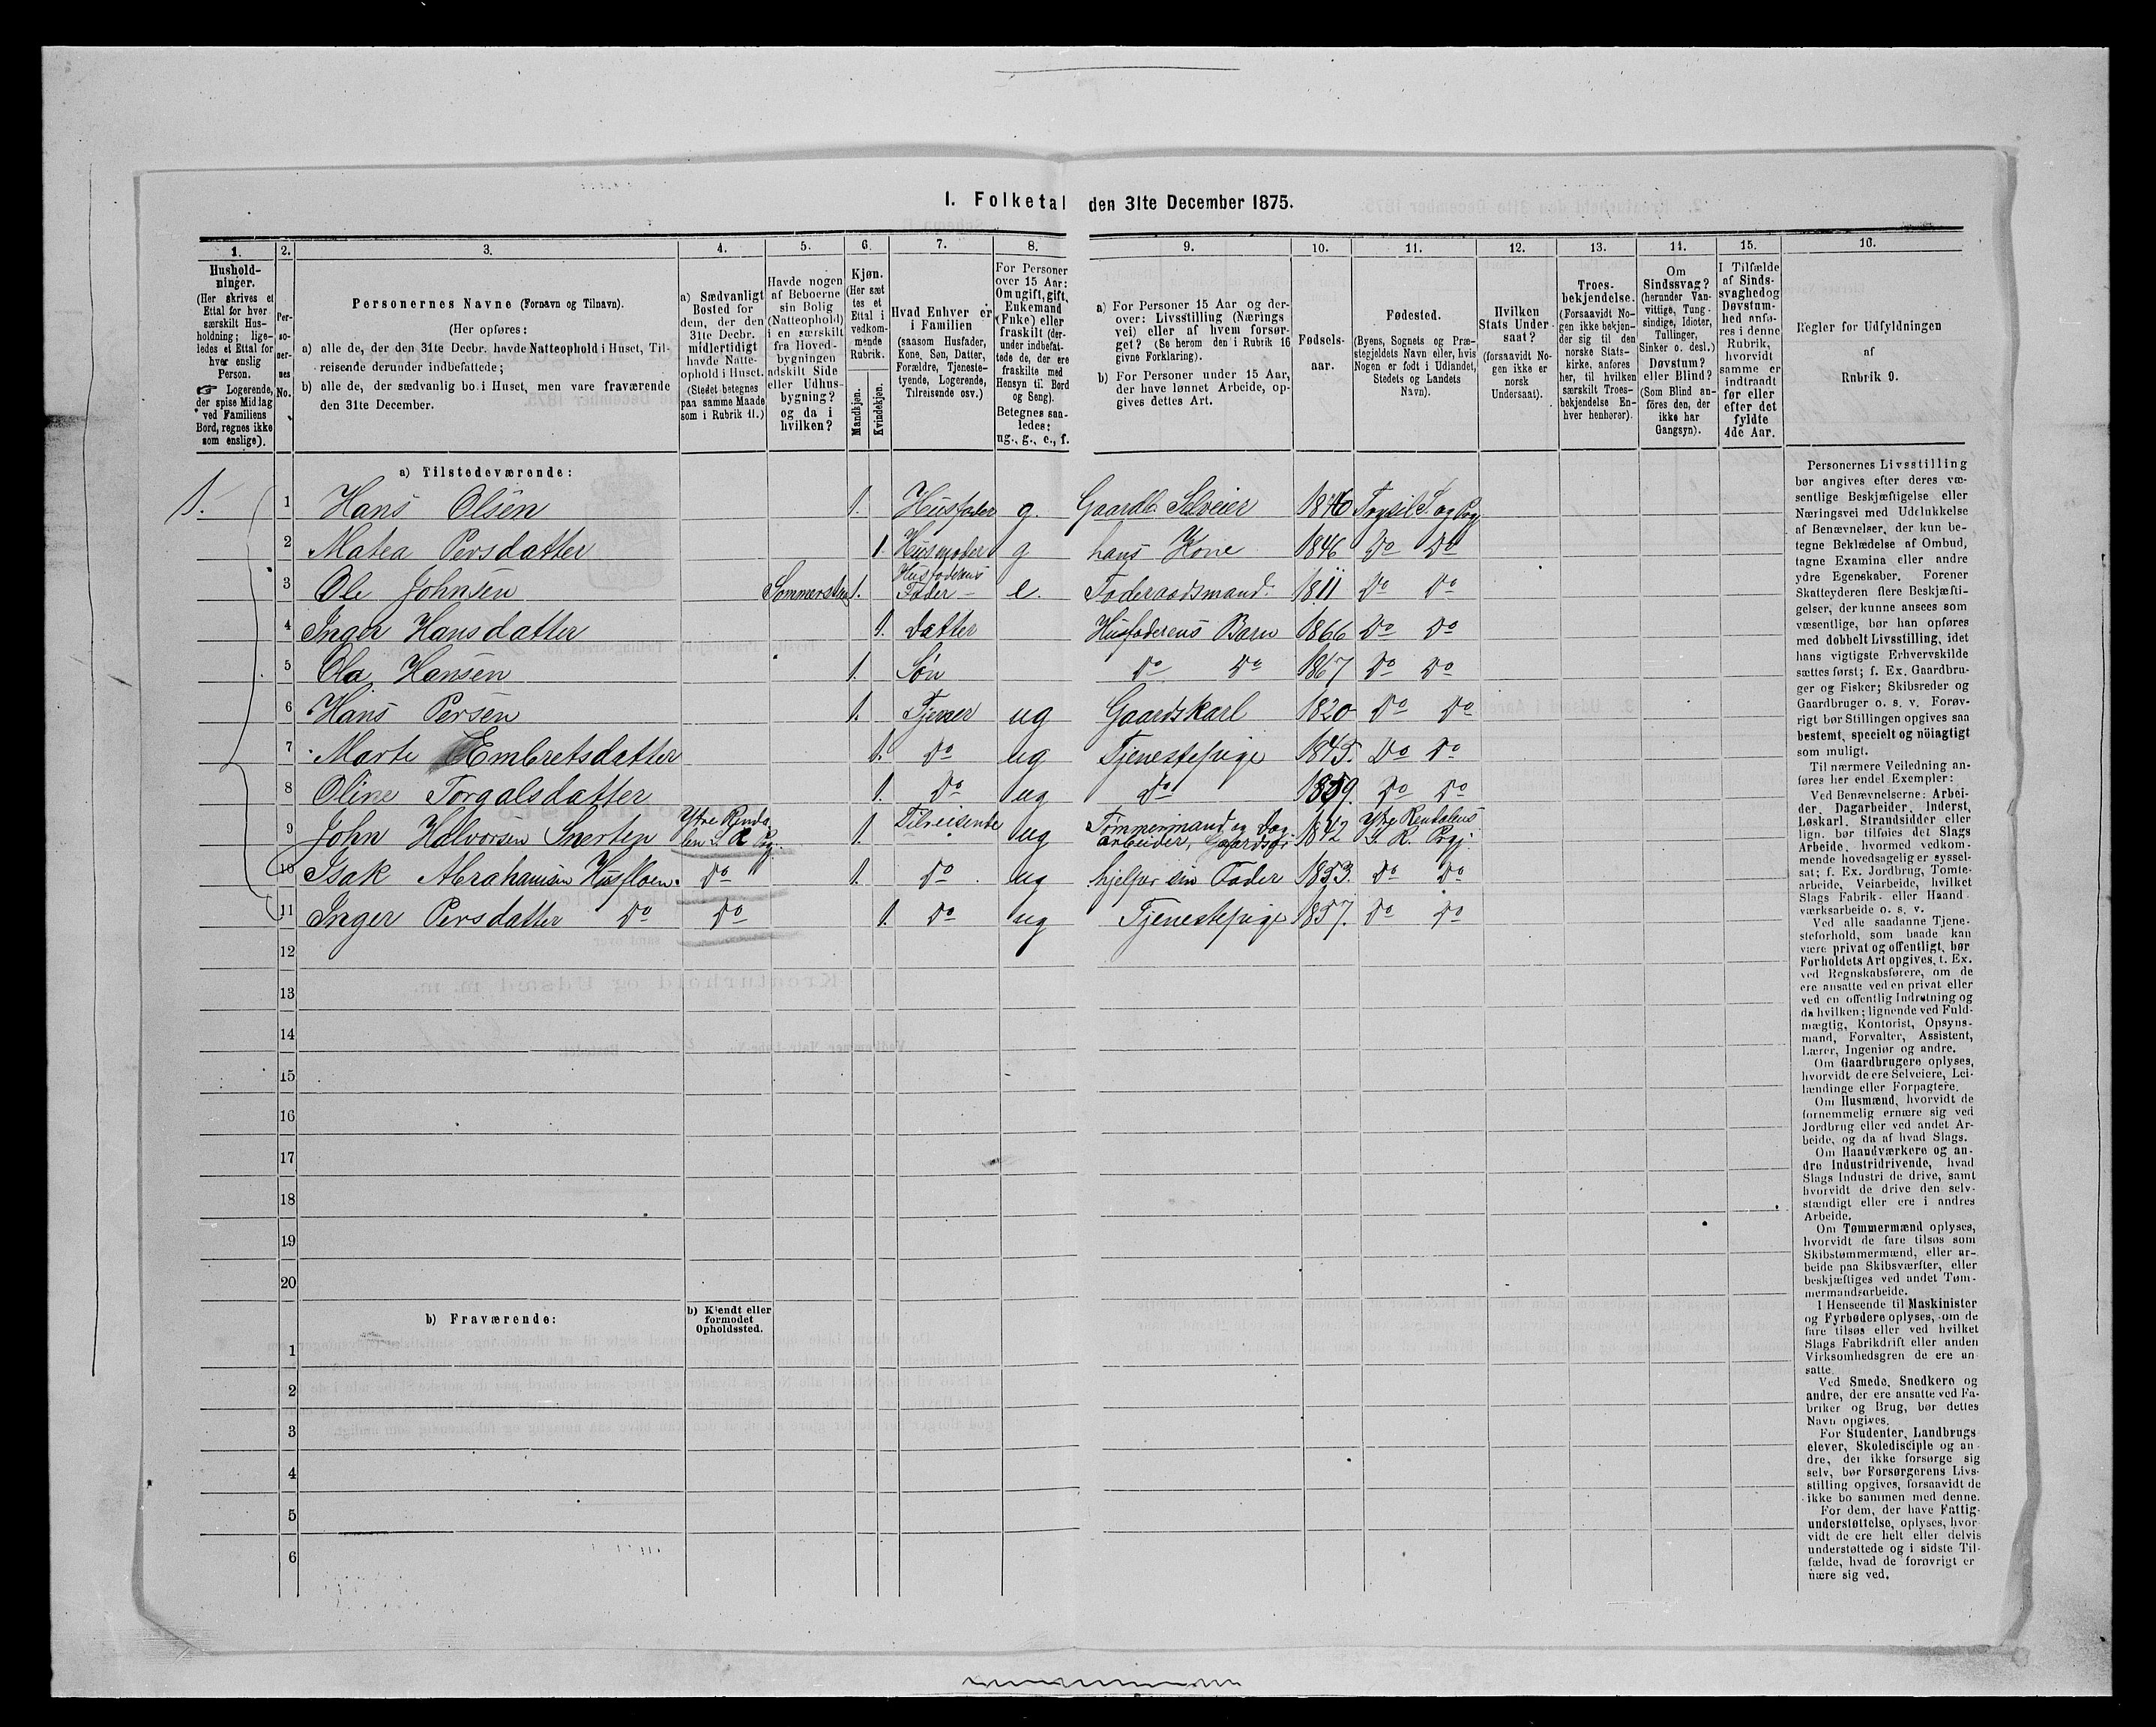 I. Folketal den 31te December 1875.
1. 2. 3. 4. 5. 6. 7. 8. 9. 10. 11. 12. 13. 14. 15. 16.
Husholdninger.
(Her skrives et
Ettal for hver
særskilt Hus-
holdning; lige-
ledes et Ettal for
hver enslig
Person.
☞ Logerende,
der spise Middag
ved Familiens
Bord, regnes ikke
som enslige).
Per-
so-
ner-
nes
No.
Personernes Navne (Fornavn og Tilnavn).
(Her opføres:
a) alle de, der den 31te Decbr. havde Natteophold i Huset, Til-
reisende derunder indbefattede;
b) alle de, der sædvanlig bo i Huset, men vare fraværende
den 31te December.
a) Sædvanligt
Bosted for
dem, der den
31te Decbr.
midlertidigt
havde Natte-
ophold i Huset.
(Stedet betegnes
paa samme Maade
som i Rubrik 11.)
Havde nogen
af Beboerne
sin Bolig
(Natteophold)
i en særskilt
fra Hoved-
bygningen
adskilt Side
eller Udhus-
bygning?
og da i
hvilken?
Kjøn.
(Her sæt
tes et
Ettal i
vedkom-
mende
Rubrik.
Mandkjøn.
Kvindekjøn.
Hvad Enhver er
i Familien
(saasom Husfader,
Kone, Søn, Datter,
Forældre, Tjeneste-
tyende, Logerende,
Tilreisende osv.)
For Personer
over 15 Aar:
Om ugift, gift,
Enkemand
(Enke) eller
fraskilt (der-
under indbefat-
tede de, der ere
fraskilte med
Hensyn til Bord
og Seng).
Betegnes saa-
ledes:
ug., g., e., f.
a) For Personer 15 Aar og der-
over: Livsstilling (Nærings
vei) eller af hvem forsør-
get? (Se herom den i Rubrik 16
givne Forklaring).
b) For Personer under 15 Aar,
der have lønnet Arbeide, op-
gives dettes Art.
Fødsels-
aar.
Fødested.
(Byens, Sognets og Præ-
stegjeldets Navn eller, hvis
Nogen er født i Udlandet,
Stedets og Landets
Navn).
Hvilken
Stats Under-
saat?
(forsaavidt No-
gen ikke er
norsk
Undersaat).
Troes-
bekjendelse.
(Forsaavidt No-
gen ikke bekjen-
der sig til den
norske Stats-
kirke, anføres
her, til hvilken
særskilt Troes-
bekjendelse En-
hver henhører).
Om
Sindssvag?
(herunder Van-
vittige, Tung-
sindige, Idioter,
Tullinger,
Sinker o. desl.)
Døvstum?
eller Blind?
(Som Blind an-
føres den, der
ikke har
Gangsyn).
I Tilfælde
af Sinds-
svaghed og
Døvstum-
hed anfø-
res i denne
Rubrik,
hvorvidt
samme er
indtraadt
før eller
efter det
fyldte
4de Aar.
Regler for Udfyldningen
af
Rubrik 9.
a) Tilstedeværende:
1. 1 Hans Olsen 1. Husfader g. Gaardb. Selveier 1840 Trysil S og Prgj
2 Matea Persdatter 1. Husmoder g hans Kone 1846 Do Do
3 Ole Johnsen 1. Husfaderens Fader e. Foderaadsmand 1811 Do Do
4 Inger Hansdatter 1. Datter Husfaderens Barn 1866 Do Do
5 Ola Hansen 1. Søn Do Do 1867 Do Do
6 Hans Persen 1. Tjener ug Gaardskarl 1820 Do Do
7 Marte Embretsdatter 1. Do ug Tjenestepige 1845. Do Do
8 Oline Torgalsdatter 1. Do ug Do 1859. Do Do
9 John Halvorsen Snerten Ytre Renda- len S. R Prgj. 1. Tilreisende ug Tømmermand og Dag- arbeider, 1842 Ytre Rendalens S. R. Prgj.
10 Isak Abrahamsen Husfloen Do 1. Do ug hjelper sin Fader 1853. Do Do
11 Inger Persdatter Do Do 1. Do ug Tjenestepige 1857. Do Do
12
13
14
15
16
17
18
19
20
b) Fraværende:
b) Kjendt eller
formodet
Opholdssted.
1
2
3
4
5
6
Personernes Livsstilling
bør angives efter deres væ-
sentlige Beskjæftigelse eller
Næringsvei med Udelukkelse
af Benævnelser, der kun be-
tegne Beklædelse af Ombud,
tagne Examina eller andre
ydre Egenskaber. Forener
Skatteyderen flere Beskjæfti-
gelser, der kunne ansees som
væsentlige, bør han opføres
med dobbelt Livsstilling, idet
hans vigtigste Erhvervskilde
sættes først; f. Ex. Gaardbru-
ger og Fisker; Skibsreder og
Gaardbruger o. s. v. Forøv-
rigt bør Stillingen opgives saa
bestemt, specielt og nöiagtigt
som muligt.
Til nærmere Veiledning an-
føres her endel Exempler:
Ved Benævnelserne: Arbei-
der, Dagarbeider, Inderst,
Løskarl, Strandsidder eller
lign. bør tilføies det Slags
Arbeide, hvormed vedkom-
mende hovedsagelig er syssel-
sat; f. Ex. Jordbrug, Tomte-
arbeide, Veiarbeide, hvilket
Slags Fabrik- eller Haand-
værksarbeide o. s. v.
Ved alle saadanne Tjene-
steforhold, som baade kan
være privat og offentligt, bør
Forholdets Art opgives, t. Ex.
ved Regnskabsførere, om de
ere ansatte ved en privat eller
ved en offentlig Indretning og
da hvilken; lignende ved Fuld-
mægtig, Kontorist, Opsyns-
mand, Forvalter, Assistent,
Lærer, Ingeniør og andre.
Om Gaardbrugere oplyses,
hvorvidt de ere Selveiere, Lei-
lændinge eller Forpagtere.
Om Husmænd, hvorvidt de
fornemmelig ernære sig ved
Jordbrug eller ved andet Ar-
beide, og da af hvad Slags.
Om Haandværkere og an-
dre Industridrivende, hvad
Slags Industri de drive, samt
hvorvidt de drive den selv-
stændigt eller ere i andres
Arbeide.
Om Tømmermænd oplyses,
hvorvidt de fare tilsøs som
Skibstømmermænd, eller ar-
beide paa Skibsværfter, eller
beskjæftiges ved andet Tøm-
mermandsarbeide.
I Henseende til Maskinister
og Fyrbødere oplyses, om de
fare tilsøs eller ved hvilket
Slags Fabrikdrift eller anden
Virksomhedsgren de ere an-
satte.
Ved Smede, Snedkere og
andre, der ere ansatte ved Fa-
briker og Brug, bør dettes
Navn opgives.
For Studenter, Landbrugs
elever, Skoledisciple og an-
dre, der ikke forsørge sig
selv, bør Forsørgerens Livs-
stilling opgives, forsaavidt de
ikke bo sammen med denne.
For dem, der have Fattig-
understøttelse, oplyses, hvor-
vidt de ere helt eller delvis
understøttede og i sidste Til-
fælde, hvad de forøvrigt er
nære sig ved.